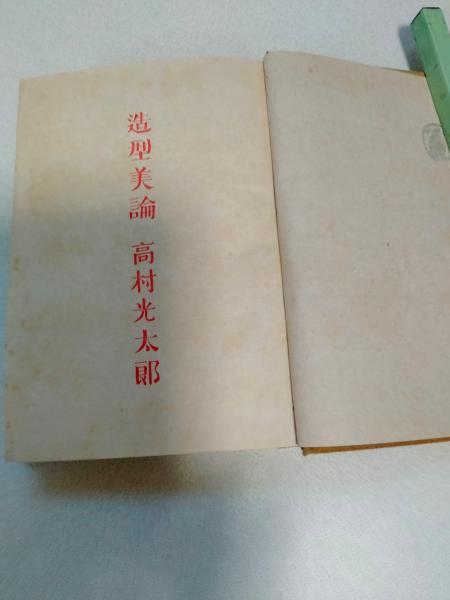 造型美論 高村光太郎